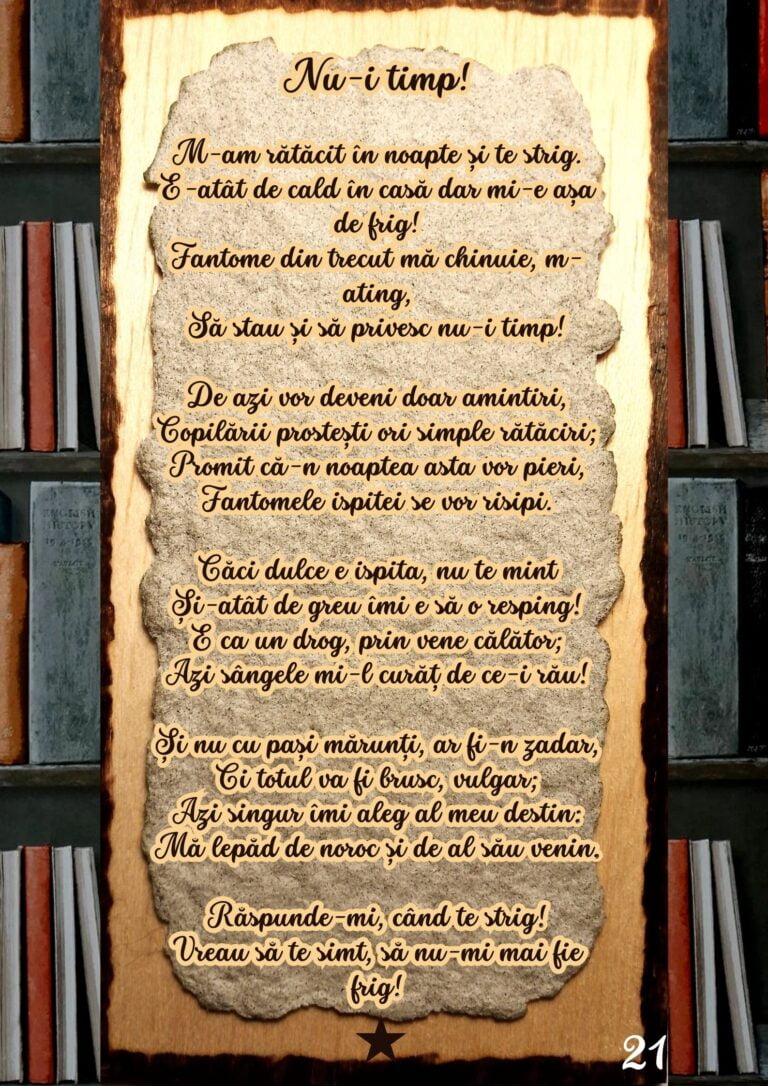 Nu-i timp!
M-am rătăcit în noapte și te strig.
E-atât de cald în casă dar mi-e așa
de frig!
Fantome din trecut mă chinuie, m-
ating,
Să stau și să privesc nu-i timp!
De azi vor deveni doar amintiri,
Copilării prostești ori simple rătăciri;
Promit că-n noaptea asta vor pieri,
Fantomele ispitei se vor risipi.
Căci dulce e ispita, nu te mint
Și-atât de greu îmi e să o resping!
E ca un drog, prin vene călător;
Azi sângele mi-l curăț de ce-i rău!
Și nu cu pași mărunți, ar fi-n zadar,
Ci totul va fi brusc, vulgar;
Azi singur îmi aleg al meu destin:
Mă lepăd de noroc și de al său venin.
Răspunde-mi, când te strig!
Vreau să te simt, să nu-mi mai fie
frig!
21
ENGLISH
HISTORY
ENGLISH
HISTORY